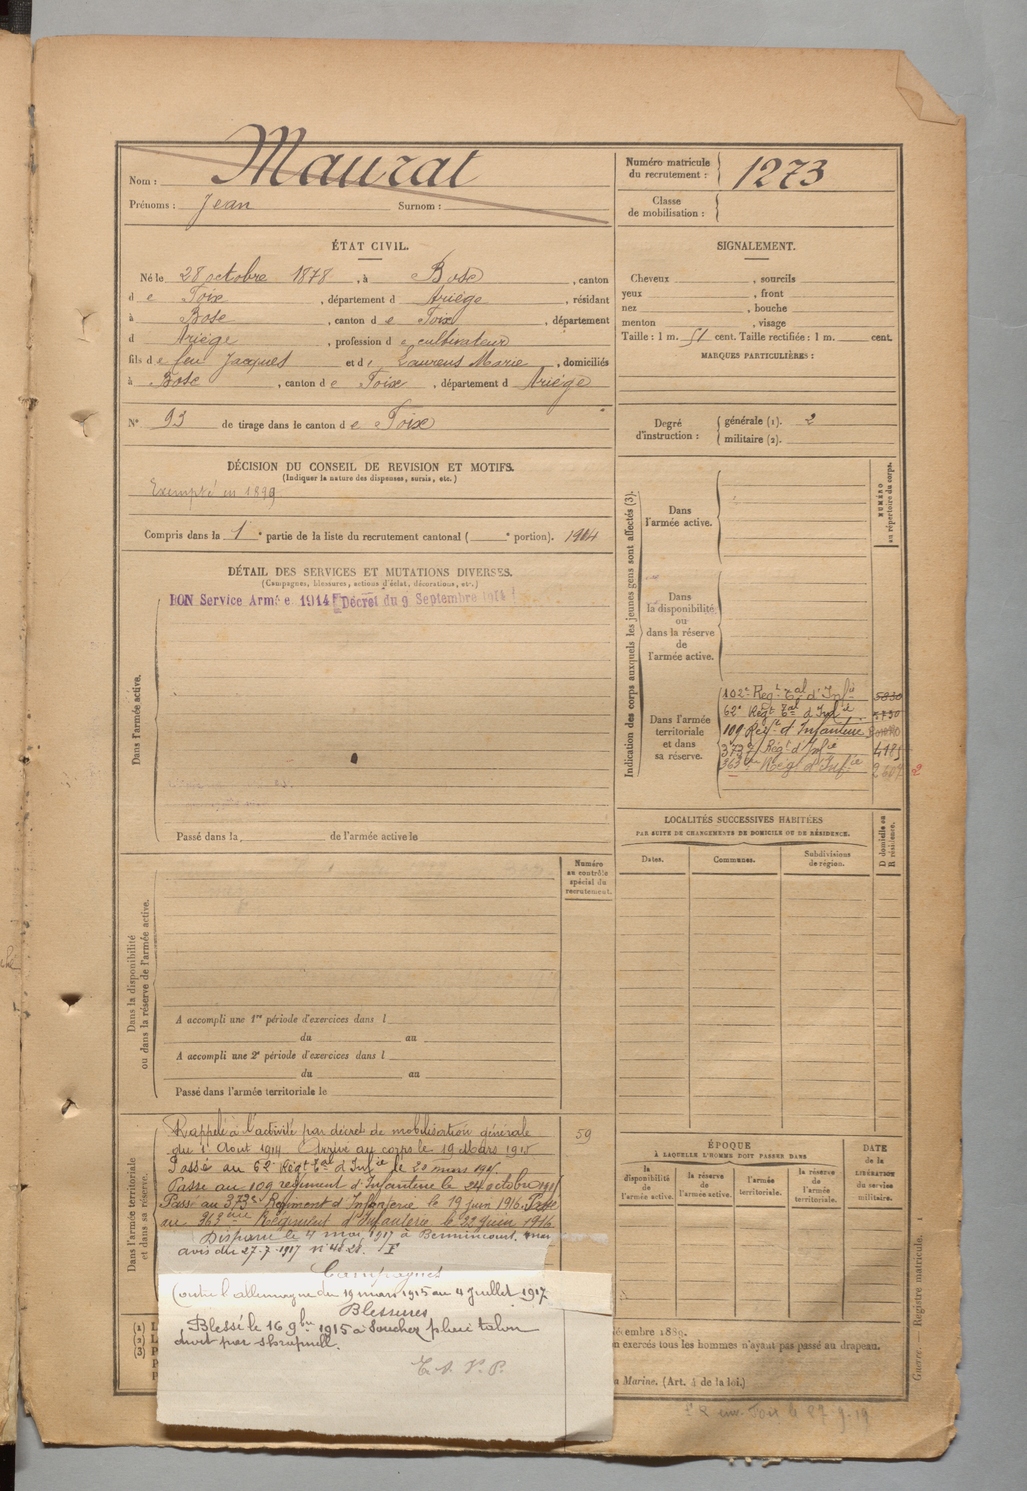 Nom : Maurat
Prénoms : Jean Surnom :
Numéro matricule
du recrutement : 1273
Classe
de mobilisation :
ÉTAT CIVIL.
Né le 28 octobre 1878, à Bosc, canton
de Foix, département d Ariège, résidant
à Bosc, canton de Foix, département
d Ariège, profession de cultivateur
fils de feu Jacques et de Laurens Marie, domiciliés
à Bosc, canton de Foix, département d Ariège
N° 93 de tirage dans le canton de Foix
SIGNALEMENT.
Cheveux , sourcils
yeux , front
nez , bouche
menton , visage
Taille : 1 m. 51 cent. Taille rectifiée : 1 m. cent.
MARQUES PARTICULIÈRES :
Degré
d'instruction :
générale (1). 2
militaire (2).
DÉCISION DU CONSEIL DE REVISION ET MOTIFS.
(Indiquer la nature des dispenses, sursis, etc.)
Exempté en 1899
Compris dans la 1e partie de la liste du recrutement cantonal ( e portion). 1914
DÉTAIL DES SERVICES ET MUTATIONS DIVERSES.
(Campagnes, blessures, actions d'éclat, décorations, etc.)
BON Service Armée 1914 Décret du 9 Septembre 1914
Dans l'armée active.
Passé dans la de l'armée active le
Indication des corps auxquels les jeunes gens sont affectés (3).
NUMÉRO
au répertoire du corps.
Dans
l'armée active.
Dans
la disponibilité
ou
dans la réserve
de
l'armée active.
Dans l'armée
territoriale
et dans
sa réserve.
102e Regt Tal d'Infie 5830
62e Regt Tal d'Infie
109 Regt d'Infanterie
373e Régt d'Infie
363me Régt d'Infie
LOCALITÉS SUCCESSIVES HABITÉES
PAR SUITE DE CHANGEMENTS DE DOMICILE OU DE RÉSIDENCE.
Dates.
Communes.
Subdivisions
de région.
D domicile ou
R résidence.
Numéro
au contrôle
spécial du
recrutement.
Dans la disponibilité
ou dans la réserve de l'armée active.
A accompli une 1re période d'exercices dans l
du au
A accompli une 2e période d'exercices dans l
du au
Passé dans l'armée territoriale le
Dans l'armée territoriale
et dans sa réserve.
59
Rappelé à l'activité par décret de mobilisation générale
du 1er Aout 1914. Arrivé au corps le 19 Mars 1915
Passé au 62e Régt Tal d'Infie le 20 mars 1915
Passé au 109 régiment d'Infanterie le 24 octobre 1915
Passé au 373e Régiment d'Infanterie le 19 juin 1916. Passé
au 363ème Régiment d'Infanterie le 22 juin 1916
Disparu le 4 mai 1917 à
avis du 27-7-1917
Campagnes
Contre l'allemagne du 19 mars 1915 au 4 Juillet 1917
Blessures
Blessé le 16 9bre 1915 à Souchez plaie talon
droit par shrapnell.
ÉPOQUE
À LAQUELLE L'HOMME DOIT PASSER DANS
la
disponibilité
de
l'armée active.
la réserve
de
l'armée active.
l'armée
territoriale.
la réserve
de l'armée
territoriale.
DATE
de la
LIBÉRATION
du service
militaire.
(1)
(2)
(3)
décembre 1889.
n exercés tous les hommes n'ayant pas passé au drapeau.
a Marine. (Art. 4 de la loi.)
Guerre. — Registre matricule.